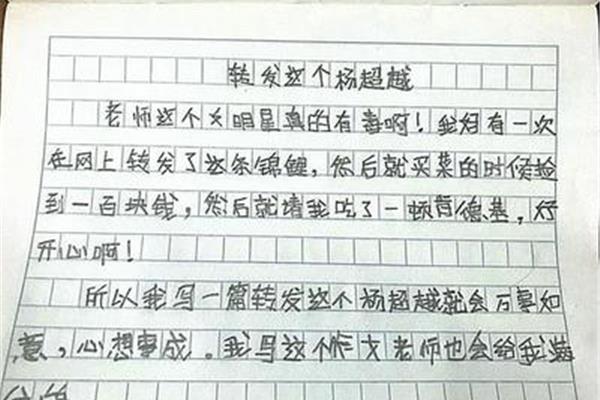 转发这个杨超越
老师这个女明星真的有毒啊！我妈有一次
在网上转发了这条锦鲤，然后就买菜的时候捡
到一百块钱，然后就请我吃了一顿肯德基，好
开心啊！
所以我写一篇转发这个杨超越就会万事如
意，心想事成。我写这个作文老师也会给我满